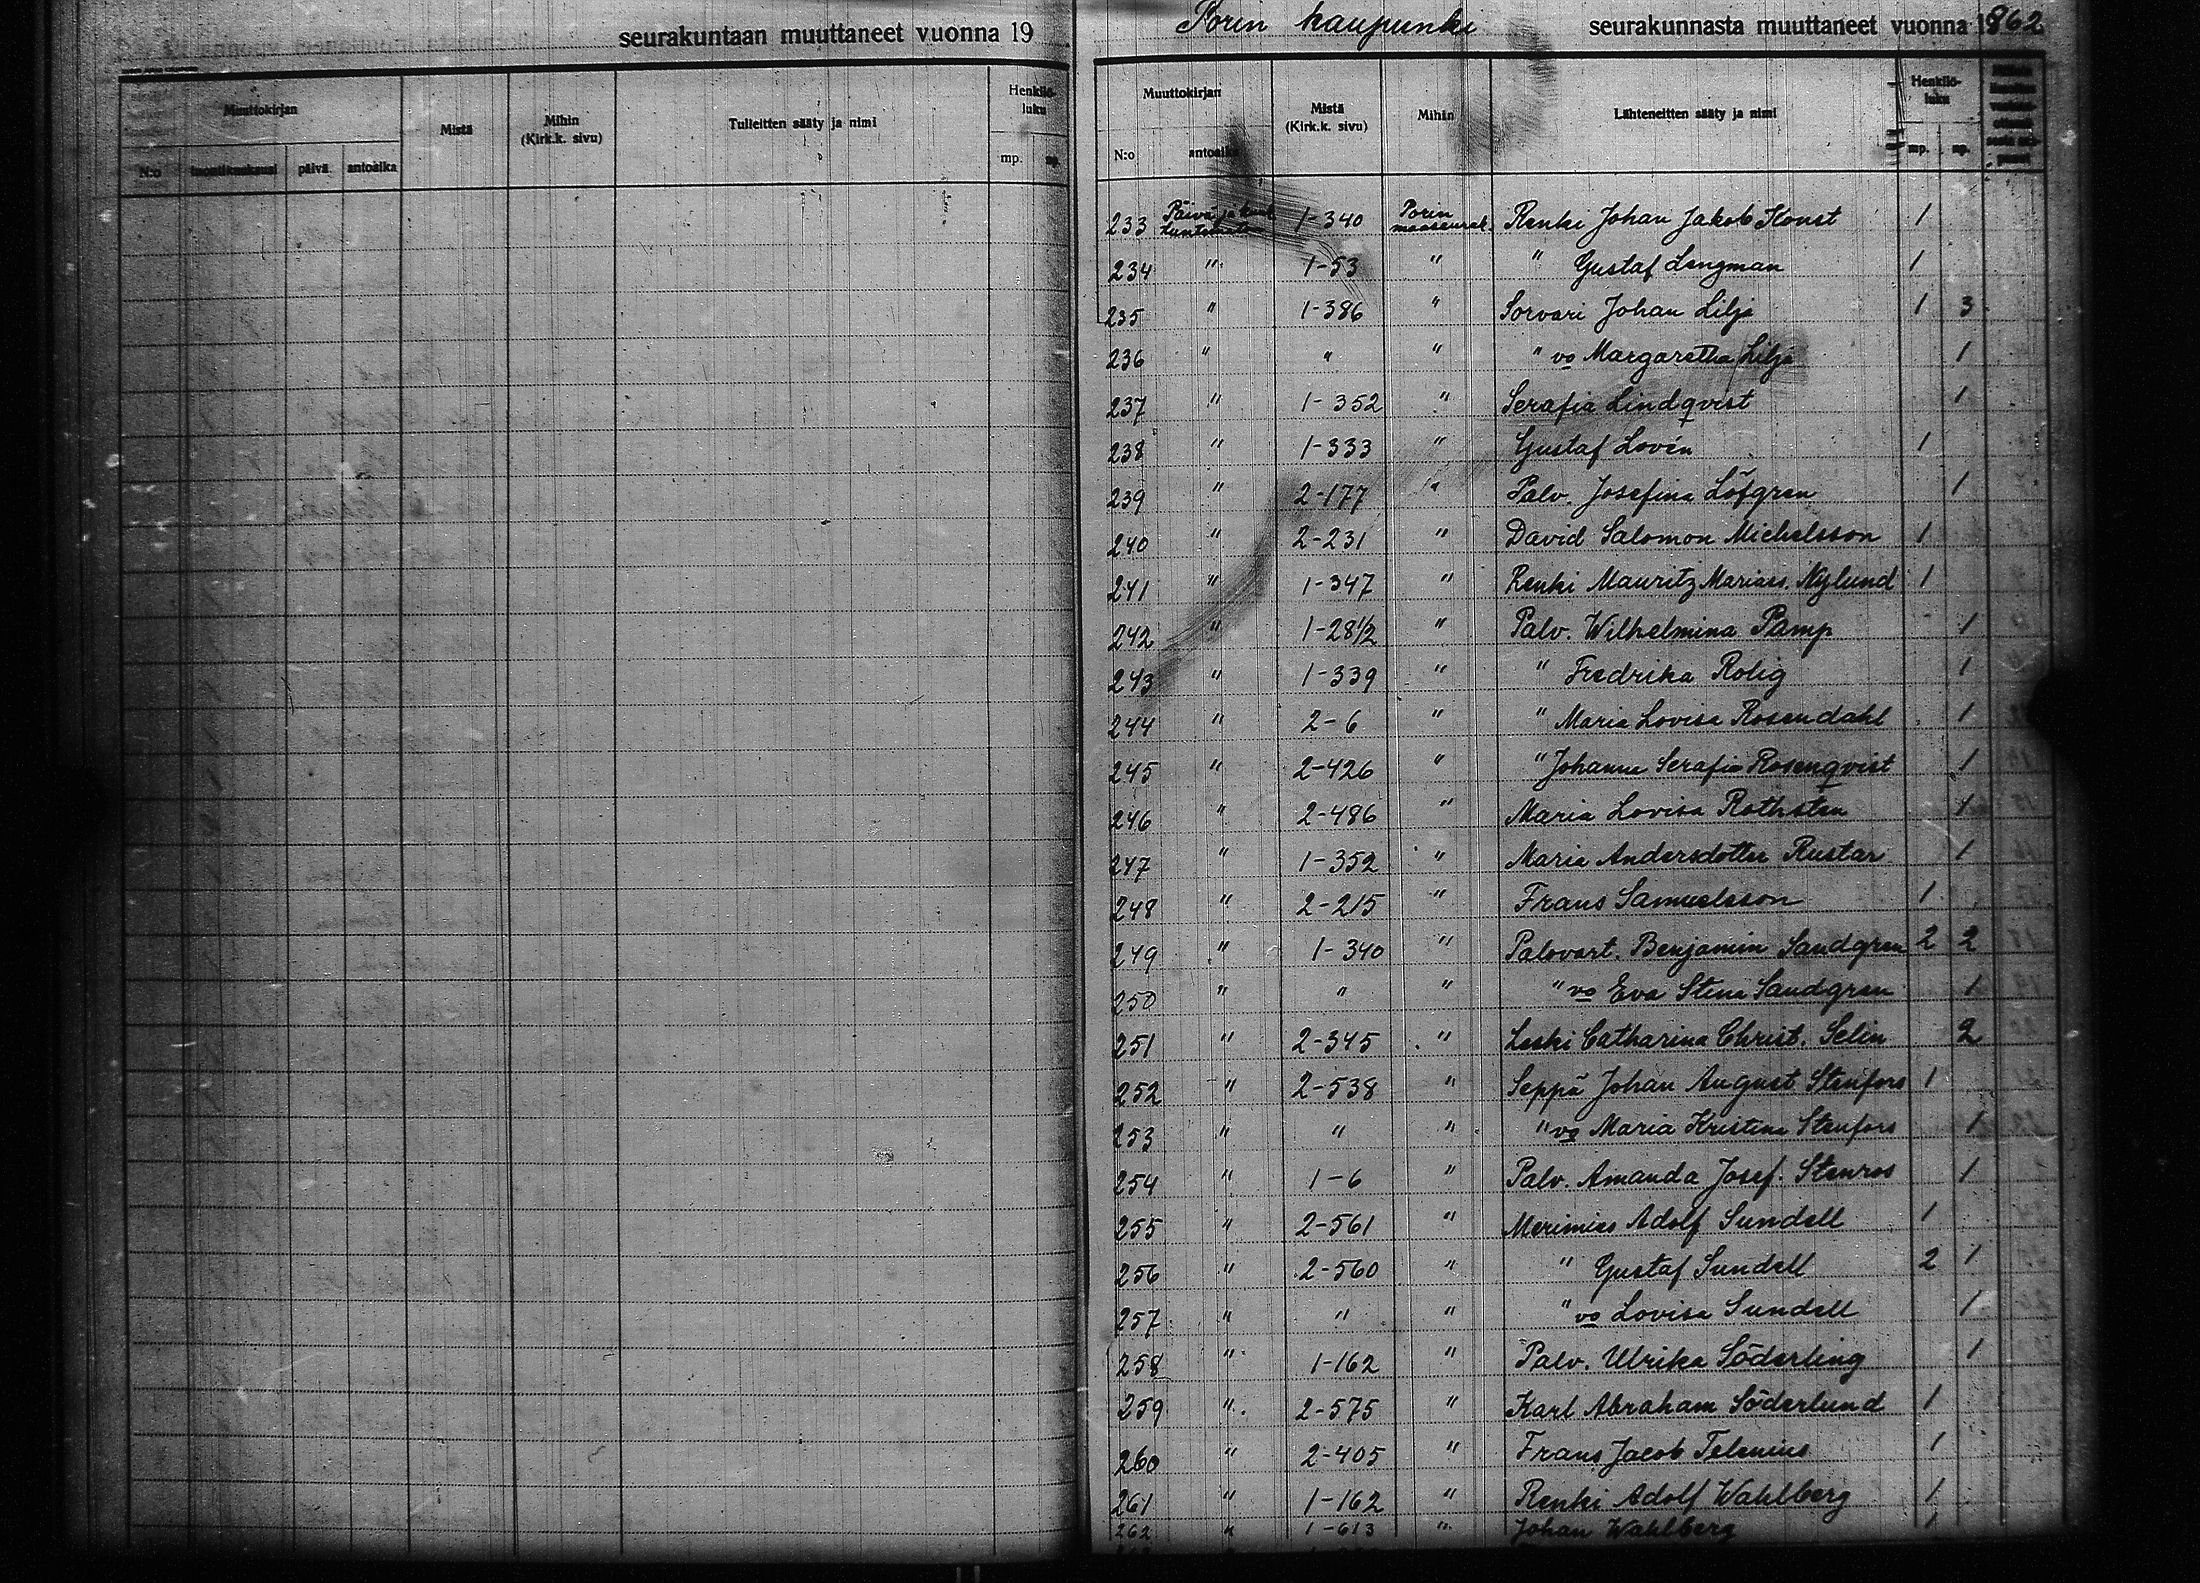 seurakuntaan muuttaneet vuonna 19
Muuttokirjan Mistä Mihin (Kirk.k. sivu) Tulleitten sääty ja nimi Henkilö-luku
N:o päivä antoaika mp. np.
Porin kaupunki seurakunnasta muuttaneet vuonna 1862
Muuttokirjan Mistä (Kirk.k. sivu) Mihin Lähteneitten sääty ja nimi Henkilö-luku
N:o antoaika mp. np.
233 Päivä ja kuuk. tuntematon 1-340 Porin maaseurak. Renki Johan Jakob Konst 1
234 " 1-53 " " Gustaf Lengman 1
235 " 1-386 " Sorvari Johan Lilja 1 3
236 " " " " vo Margaretha Lilja 1
237 " 1-352 " Serafia Lindqvist 1
238 " 1-333 " Gustaf Lovén 1
239 " 2-177 " Palv. Josefina Löfgren 1
240 " 2-231 " David Salomon Michelsson 1
241 " 1-347 " Renki Mauritz Mariass. Nylund 1
242 " 1-28 1/2 " Palv. Wilhelmina Pamp 1
243 " 1-339 " " Fredrika Rolig 1
244 " 2-6 " " Maria Lovisa Rosendahl 1
245 " 2-426 " " Johanna Serafia Rosenqvist 1
246 " 2-486 " Maria Lovisa Rothsten 1
247 " 1-352 " Maria Andersdotter Rustar 1
248 " 2-215 " Frans Samuelsson 1
249 " 1-340 " Palovart. Benjamin Sandgren 2 2
250 " " " " vo Eva Stina Sandgren 1
251 " 2-345 " Leski Catharina Christ. Selin 2
252 " 2-538 " Seppä Johan August Stenfors 1
253 " " " " vo Maria Kristina Stenfors 1
254 " 1-6 " Palv. Amanda Josef. Stenros 1
255 " 2-561 " Merimies Adolf Sundell 1
256 " 2-560 " " Gustaf Sundell 2 1
257 " " " " vo Lovisa Sundell 1
258 " 1-162 " Palv. Ulrika Söderling 1
259 " 2-575 " Karl Abraham Söderlund 1
260 " 2-405 " Frans Jacob Telenius 1
261 " 1-162 " Renki Adolf Wahlberg 1
262 " 1-613 " Johan Wahlberg 1